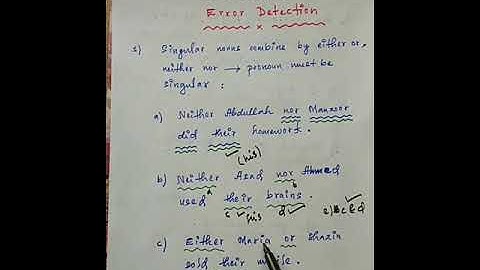 Error Detection
x
1) Singular nouns combine by either or,
neither nor → pronoun must be
singular :
a) Neither Abdullah nor Manzoor
did their homework.
(his)
b) Neither Azad nor Ahmed
a b
used their brains.
c his d
c) Either Maria or Shazia
sold their